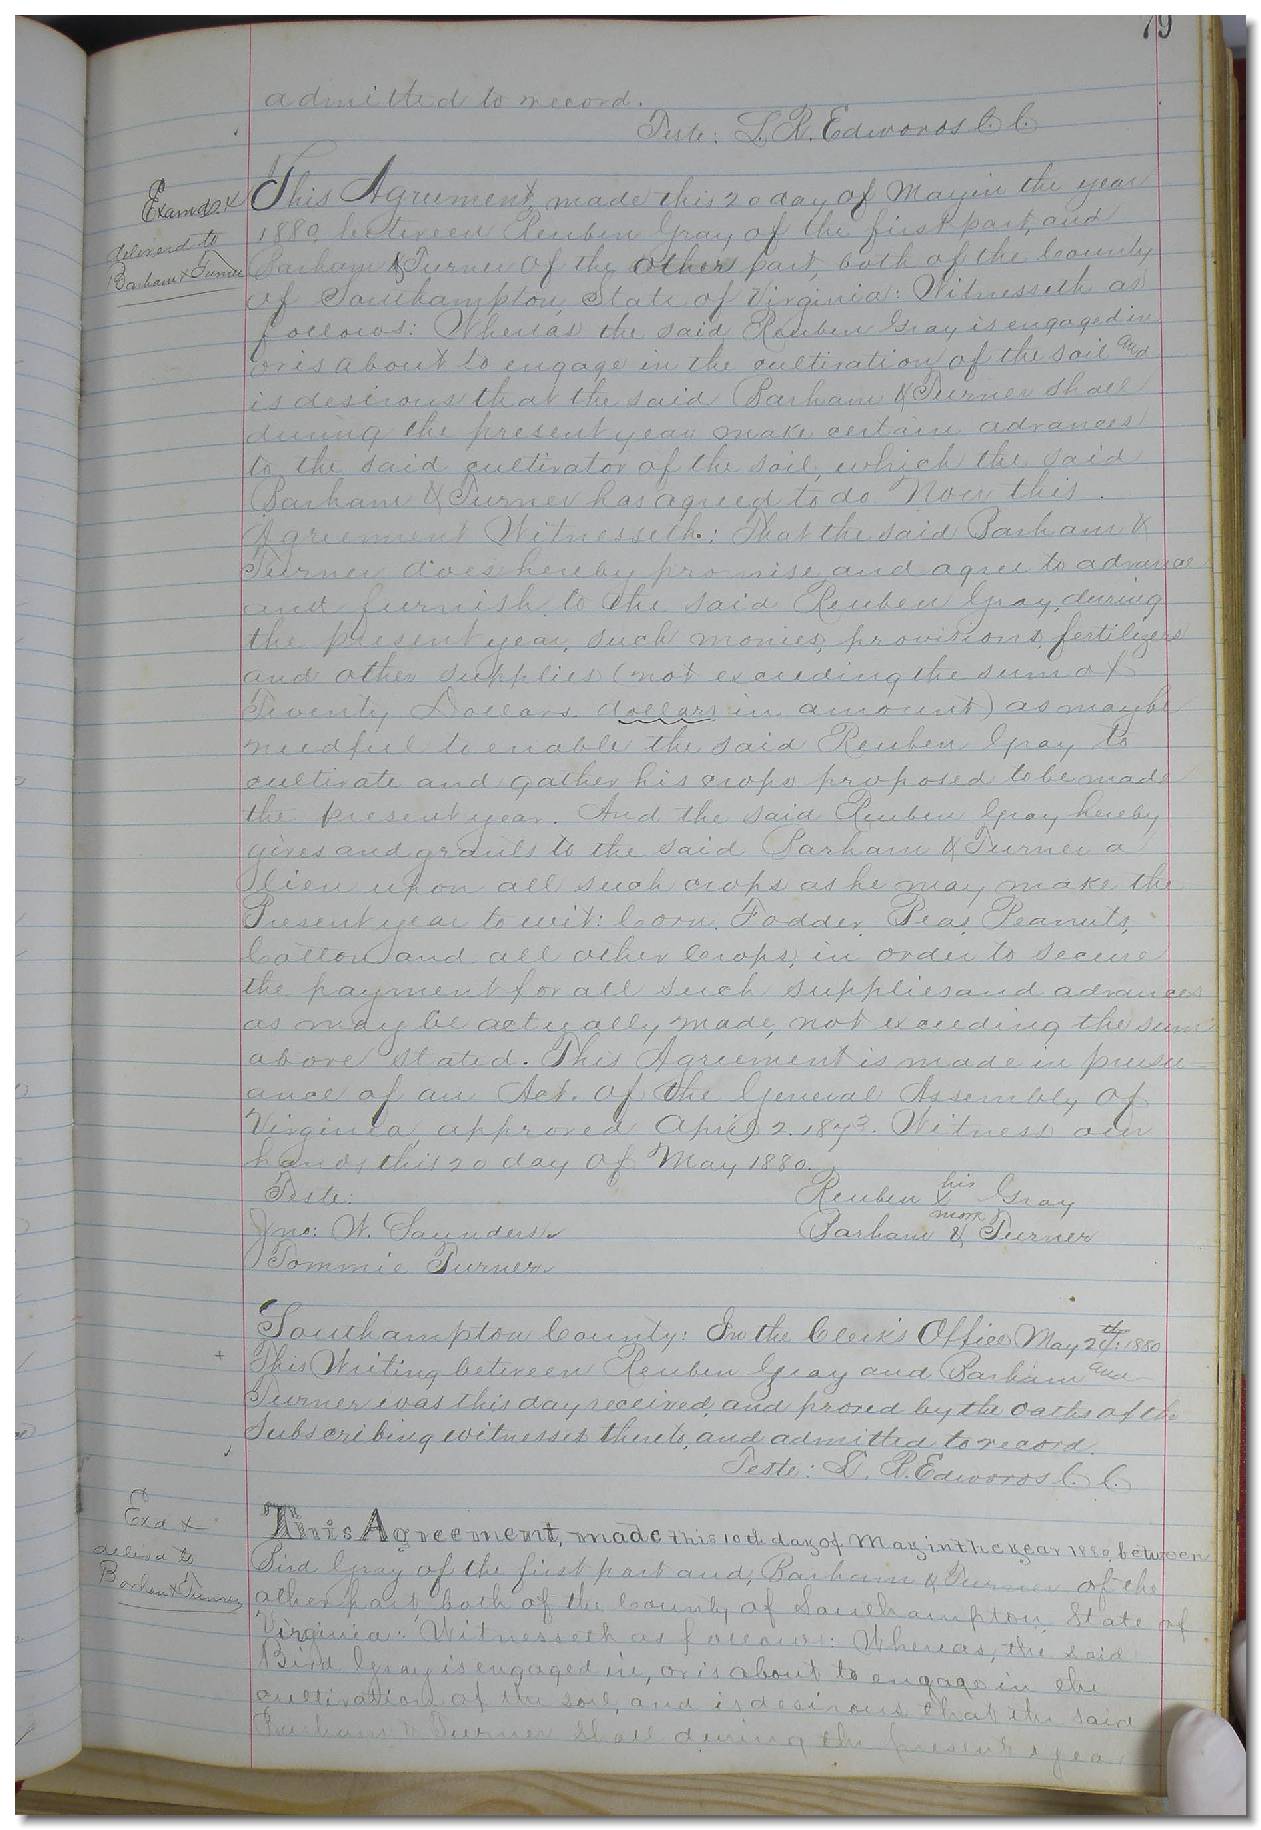 79
admitted to record.
Teste: L. R. Edwards C. C.
Examd &
deliverd to
Barham & Turner
This Agreement, made this 20 day of May in the year
1880 between Reuben Gray of the first part, and
Barham & Turner of the other part both of the County
of Southampton, State of Virginia: Witnesseth as
follows: Whereas the said Reuben Gray is engaged in
or is about to engage in the cultivation of the soil and
is desirous that the said Barham & Turner shall
during the present year make certain advances
to the said cultivator of the soil, which the said
Barham & Turner has agreed to do Now this
Agreement Witnesseth: That the said Barham &
Turner does hereby promise and agree to advance
and furnish to the said Reuben Gray, during
the present year, such monies, provisions, fertilizers
and other supplies (not exceeding the sum of
Twenty Dollars dollars in amount) as may be
needful to enable the said Reuben Gray to
cultivate and gather his crops proposed to be made
the present year. And the said Reuben Gray hereby
gives and grants to the said Barham & Turner a
lien upon all such crops as he may make the
Present year to wit: Corn, Fodder, Peas, Peanuts,
Cotton and all other Crops, in order to secure
the payment for all such supplies and advances
as may be actually made, not exceeding the sum
above stated. This Agreement is made in pursu-
ance of an Act. of the General Assembly of
Virginia, approved April 2. 1873. Witness our
hands this 20 day of May 1880.
Teste: Reuben his x mark Gray
Jno: W. Saunders Barham & Turner
Tommie Turner
Southampton County: In the Clerk's Office May 24th: 1880
This Writing between Reuben Gray and Barham and
Turner was this day received, and proved by the oaths of the
Subscribing witnesses thereto, and admitted to record.
Teste: L. R. Edwards C. C.
Exd &
delivd to
Barham & Turner
This Agreement, made this 10th day of May in the year 1880, between
Bird Gray of the first part and, Barham & Turner of the
other part, both of the County of Southampton, State of
Virginia: Witnesseth as follows: Whereas, the said
Bird Gray is engaged in, or is about to engage in the
cultivation of the soil, and is desirous that the said
Barham & Turner shall during the present year